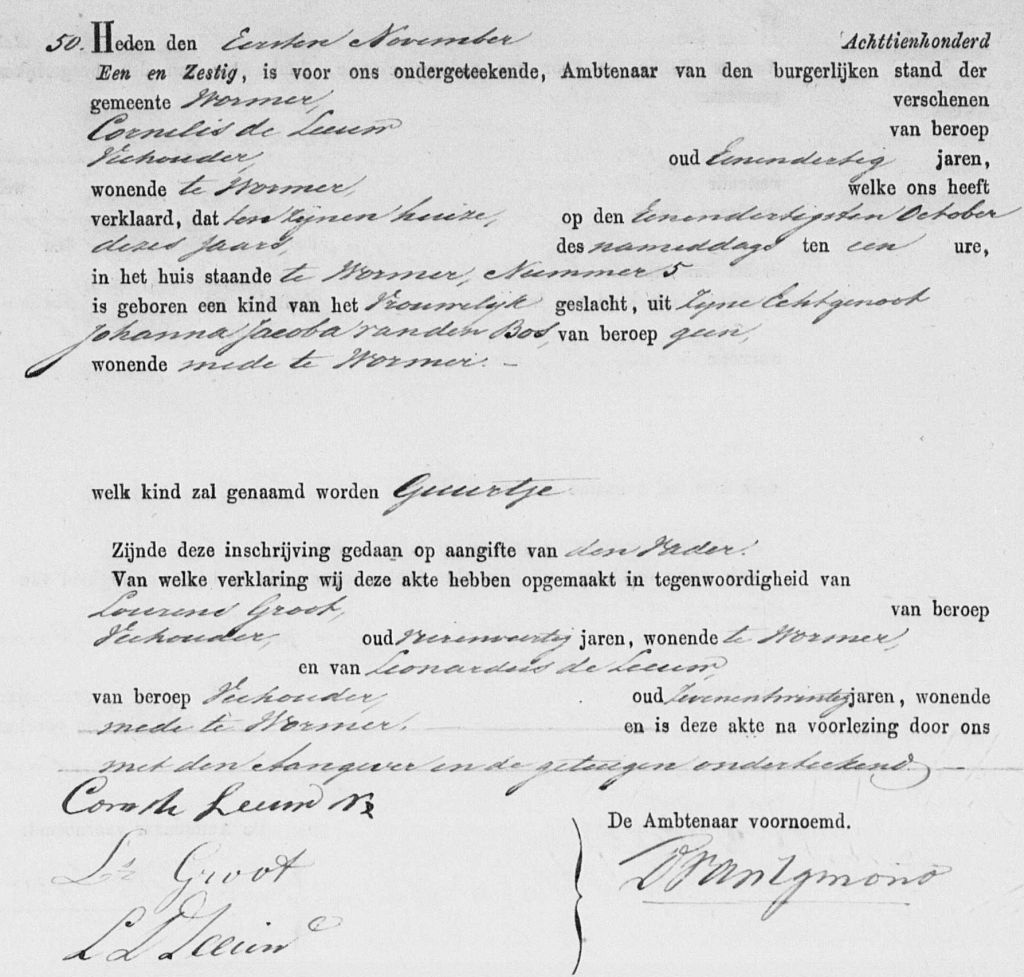 50. Heden den Eersten November Achttienhonderd
Een en Zestig, is voor ons ondergeteekende, Ambtenaar van den burgerlijken stand der
gemeente Wormer, verschenen
Cornelis de Leeuw van beroep
Veehouder, oud Eenendertig jaren,
wonende te Wormer, welke ons heeft
verklaard, dat ten zijnen huize, op den Eenendertigsten October
dezes Jaars, des namiddags ten een ure,
in het huis staande te Wormer, Nummer 5
is geboren een kind van het Vrouwelijk geslacht, uit Zijne Echtgenoot
Johanna Jacoba van den Bos, van beroep geen,
wonende mede te Wormer. –
welk kind zal genaamd worden Guurtje
Zijnde deze inschrijving gedaan op aangifte van den Vader.
Van welke verklaring wij deze akte hebben opgemaakt in tegenwoordigheid van
Lourens Groot, van beroep
Veehouder, oud Vierenveertig jaren, wonende te Wormer,
en van Leonardus de Leeuw,
van beroep Veehouder, oud Zevenentwintig jaren, wonende
mede te Wormer. en is deze akte na voorlezing door ons
met den Aangever en de getuigen onderteekend.
Corn de Leeuw
De Ambtenaar voornoemd.
Ls Groot
D van Egmond
L D Leeuw